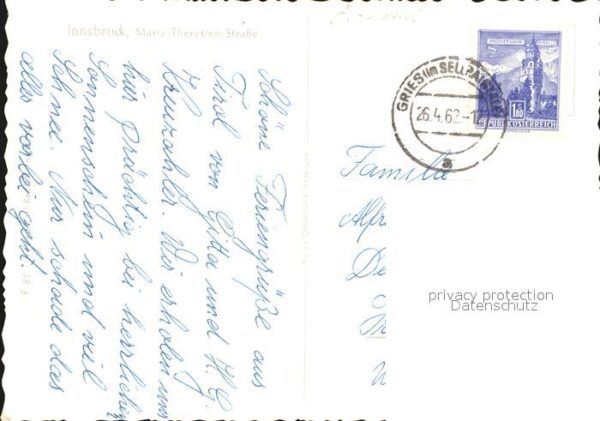 Innsbruck, Maria-Theresien-Straße
Schöne Feriengrüße aus
Tirol von Gitta und H. C.
Kreuzahler. Wir erholen uns
hier prächtig bei herrlichem
Sonnenschein und viel
Schnee. Nur schade das
alles vorbei geht.
GRIES IM SELLRAIN
26.4.62
a
1.80
REPUBLIK ÖSTERREICH
Familie
Alfr
privacy protection
Datenschutz